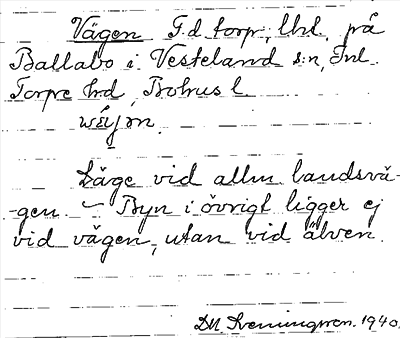 Vägen F.d torp, lht. på
Ballabo i Vesteland s:n, Inl.
Torpe hd, Bohus l.
wéjən.
Läge vid allm landsvä-
-gen. — Byn i övrigt ligger ej
vid vägen, utan vid älven.
D.N. Brenningson. 1940.